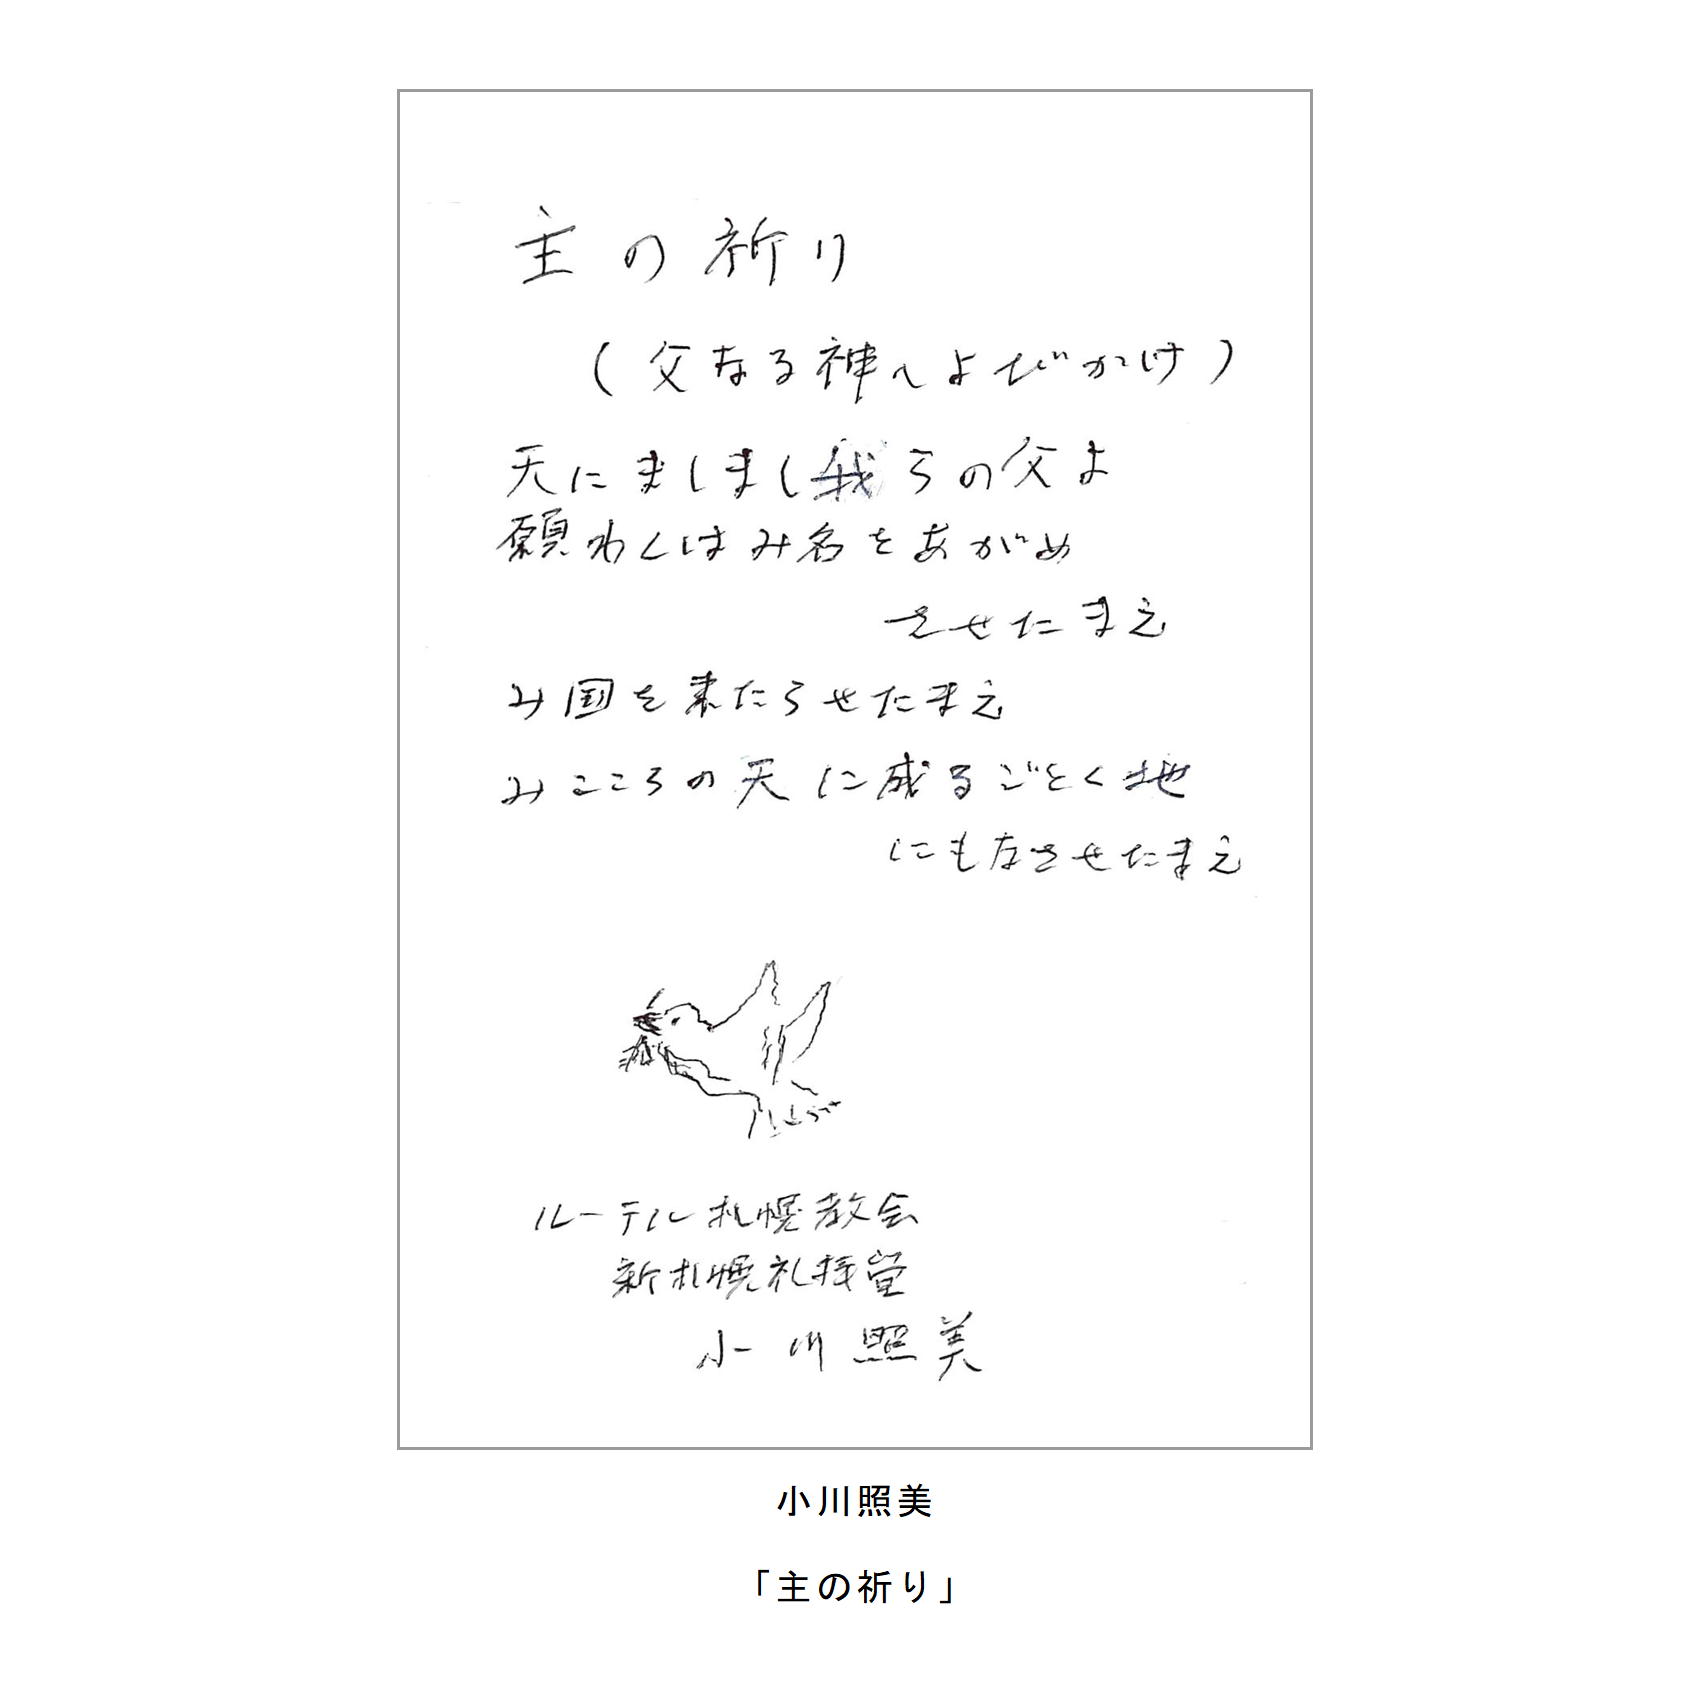 主の祈り
(父なる神へよびかけ)
天にましまし我らの父よ
願わくはみ名をあがめ
させたまえ
み国を来たらせたまえ
みこころの天に成るごとく地
にもなさせたまえ
ルーテル札幌教会
新札幌礼拝堂
小川照美
小川照美
「主の祈り」